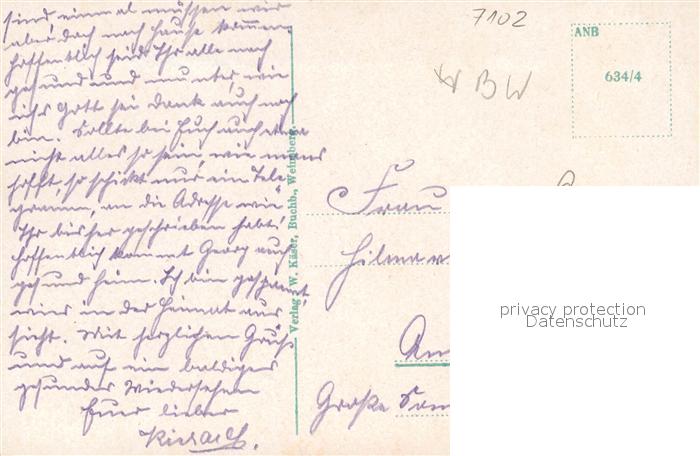 sind einmal müssen wir
aber doch nach Hause kommen.
Hoffentlich seid Ihr alle noch
gesund und munter, wie
ich Gott sei Dank auch noch
bin. Sollte bei Euch auch etwa
nicht alles so sein, wie mans
hofft, so schickt nur ein Tele-
gramm, an die Adresse wie
Ihr bisher geschrieben habt.
Hoffentlich kommt Georg auch
gesund heim. Ich bin gespannt,
wies in der Heimat aus
sieht. Mit herzlichem Gruß
und auf ein baldiges
gesundes Wiedersehen
Euer lieber
Verlag W. Käser, Buchb., Weinsberg.
7102
BW
ANB
634/4
Frau
Große
privacy protection
Datenschutz